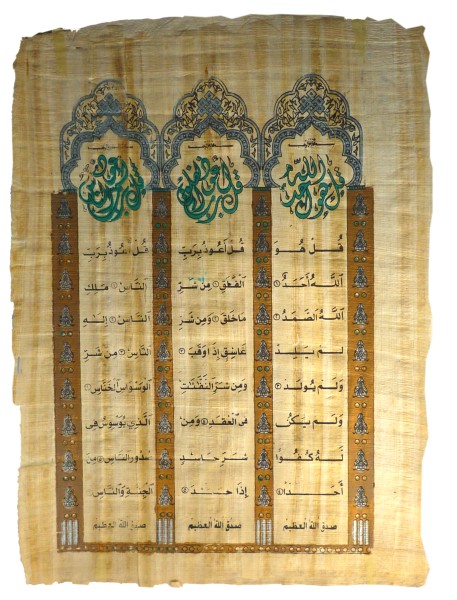 قل هو الله أحد
قُلْ هُوَ
اللَّهُ أَحَدٌ ①
اللَّهُ الصَّمَدُ ②
لَمْ يَلِدْ
وَلَمْ يُولَدْ ③
وَلَمْ يَكُن
لَّهُ كُفُوًا
أَحَدٌ ④
صدق الله العظيم
قل أعوذ برب الفلق
قُلْ أَعُوذُ بِرَبِّ
الْفَلَقِ ① مِن شَرِّ
مَا خَلَقَ ② وَمِن شَرِّ
غَاسِقٍ إِذَا وَقَبَ ③
وَمِن شَرِّ النَّفَّاثَاتِ
فِي الْعُقَدِ ④ وَمِن
شَرِّ حَاسِدٍ
إِذَا حَسَدَ ⑤
صدق الله العظيم
قل أعوذ برب الناس
قُلْ أَعُوذُ بِرَبِّ
النَّاسِ ① مَلِكِ
النَّاسِ ② إِلَٰهِ
النَّاسِ ③ مِن شَرِّ
الْوَسْوَاسِ الْخَنَّاسِ ④
الَّذِي يُوَسْوِسُ فِي
صُدُورِ النَّاسِ ⑤ مِنَ
الْجِنَّةِ وَالنَّاسِ
صدق الله العظيم